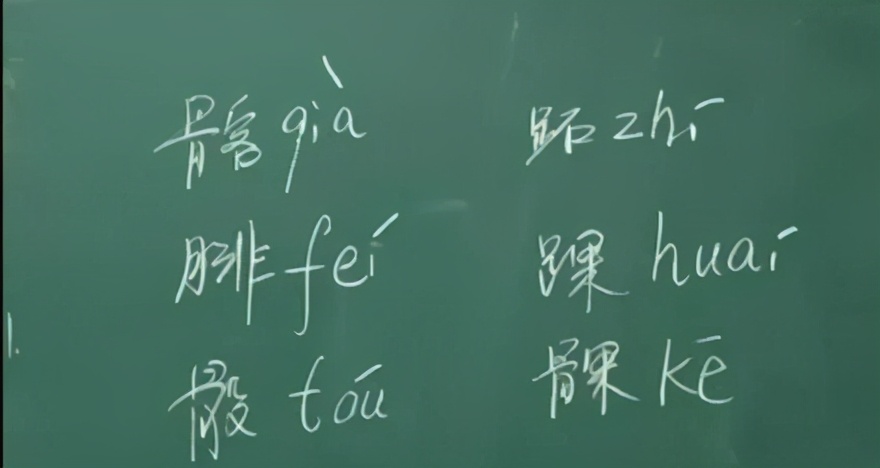 髂 qià 跖 zhí
腓 feí 踝 huaí
骰 tóu 髁 kē